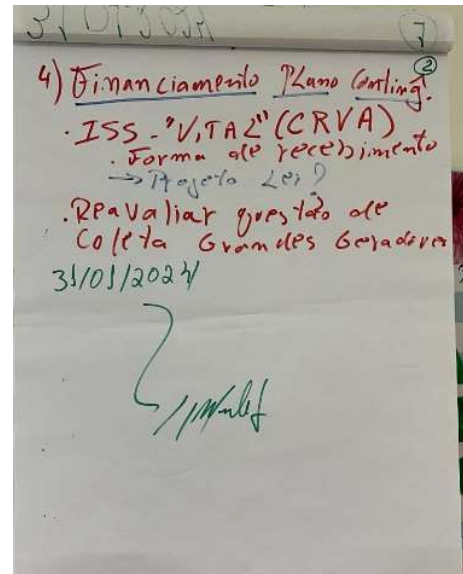 7
2
4) Financiamento Plano Conting.
. ISS - "VITAL" (CRVA)
. Forma de recebimento
→ Projeto Lei?
. Reavaliar questão de
Coleta Grandes Geradores
31/01/2024